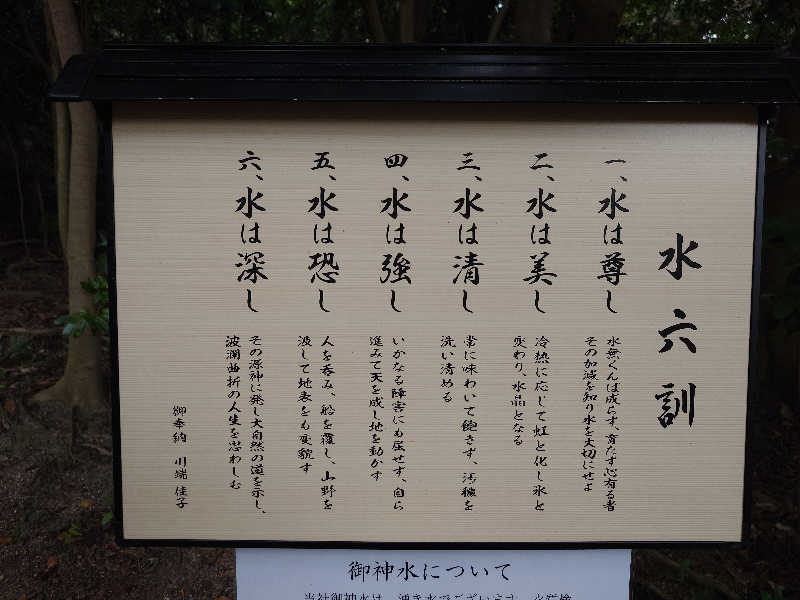 水六訓
一、水は尊し
水無くんば成らず、育たず心有る者
その加減を知り水を大切にせよ
二、水は美し
冷熱に応じて虹と化し氷と
変わり、水晶となる
三、水は清し
常に味わいて飽きず、汚穢を
洗い清める
四、水は強し
いかなる障害にも屈せず、自ら
進みて天を成し地を動かす
五、水は恐し
人を呑み、船を覆し、山野を
没して地表をも変貌す
六、水は深し
その源神に発し大自然の道を示し、
波瀾曲折の人生を思わしむ
御奉納 川端佳子
御神水について
当社御神水は、湧き水でございます。水質検